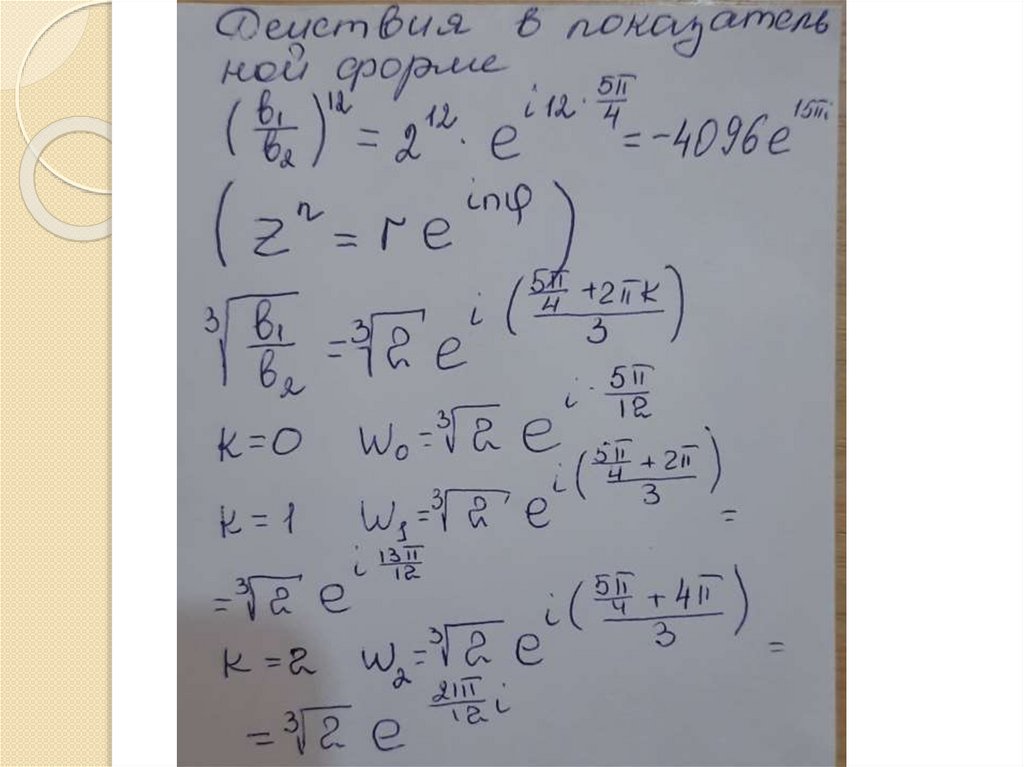 Действия в показатель
ной форме
(в₁/в₂)¹² = 2¹² · e^(i12 · 5π/4) = -4096e^(15πi)
(zⁿ = r e^(inφ))
∛(в₁/в₂) = ∛2 e^(i((5π/4 + 2πк)/3))
к=0 w₀ = ∛2 e^(i · 5π/12)
к=1 w₁ = ∛2 e^(i((5π/4 + 2π)/3)) =
= ∛2 e^(i 13π/12)
к=2 w₂ = ∛2 e^(i((5π/4 + 4π)/3)) =
= ∛2 e^(21π/12 i)